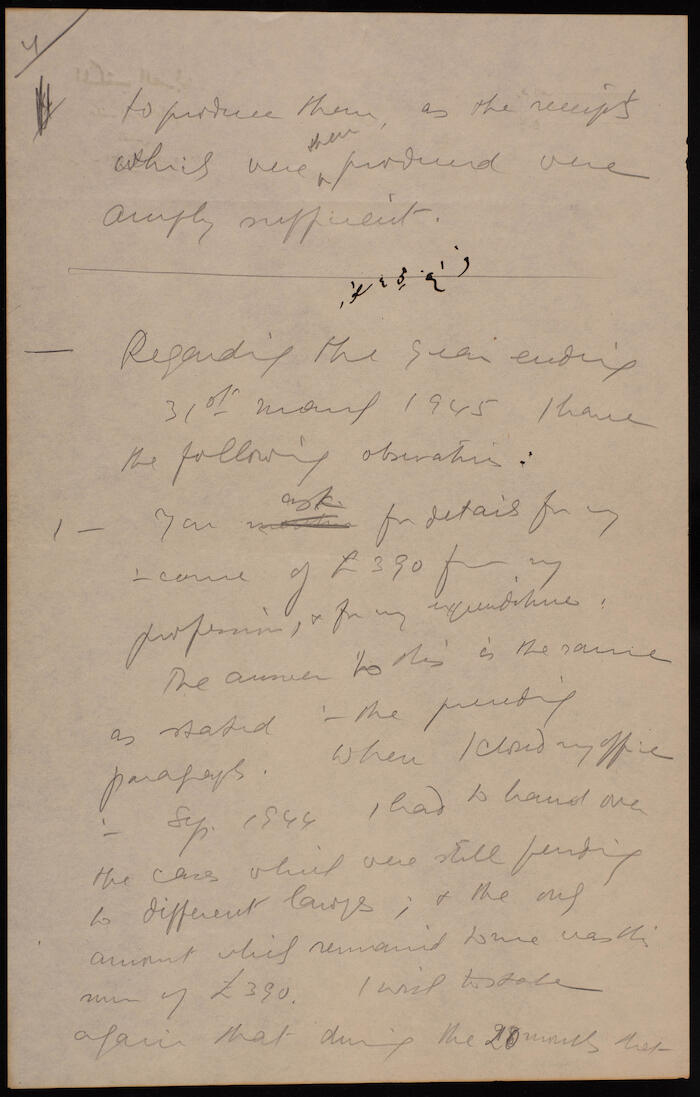 4
to produce them, as the receipts
which were then produced were
amply sufficient.
— Regarding the year ending
31st March 1945 I have
the following observations:
1 — You ask for details for my
income of £390 from my
profession, & for my expenditure.
The answer to this is the same
as stated in the preceding
paragraph. When I closed my office
in Sep. 1944 I had to hand over
the cases which were still pending
to different lawyers; & the only
amount which remained to me was this
sum of £390. I wish to state
again that during the 20 months that